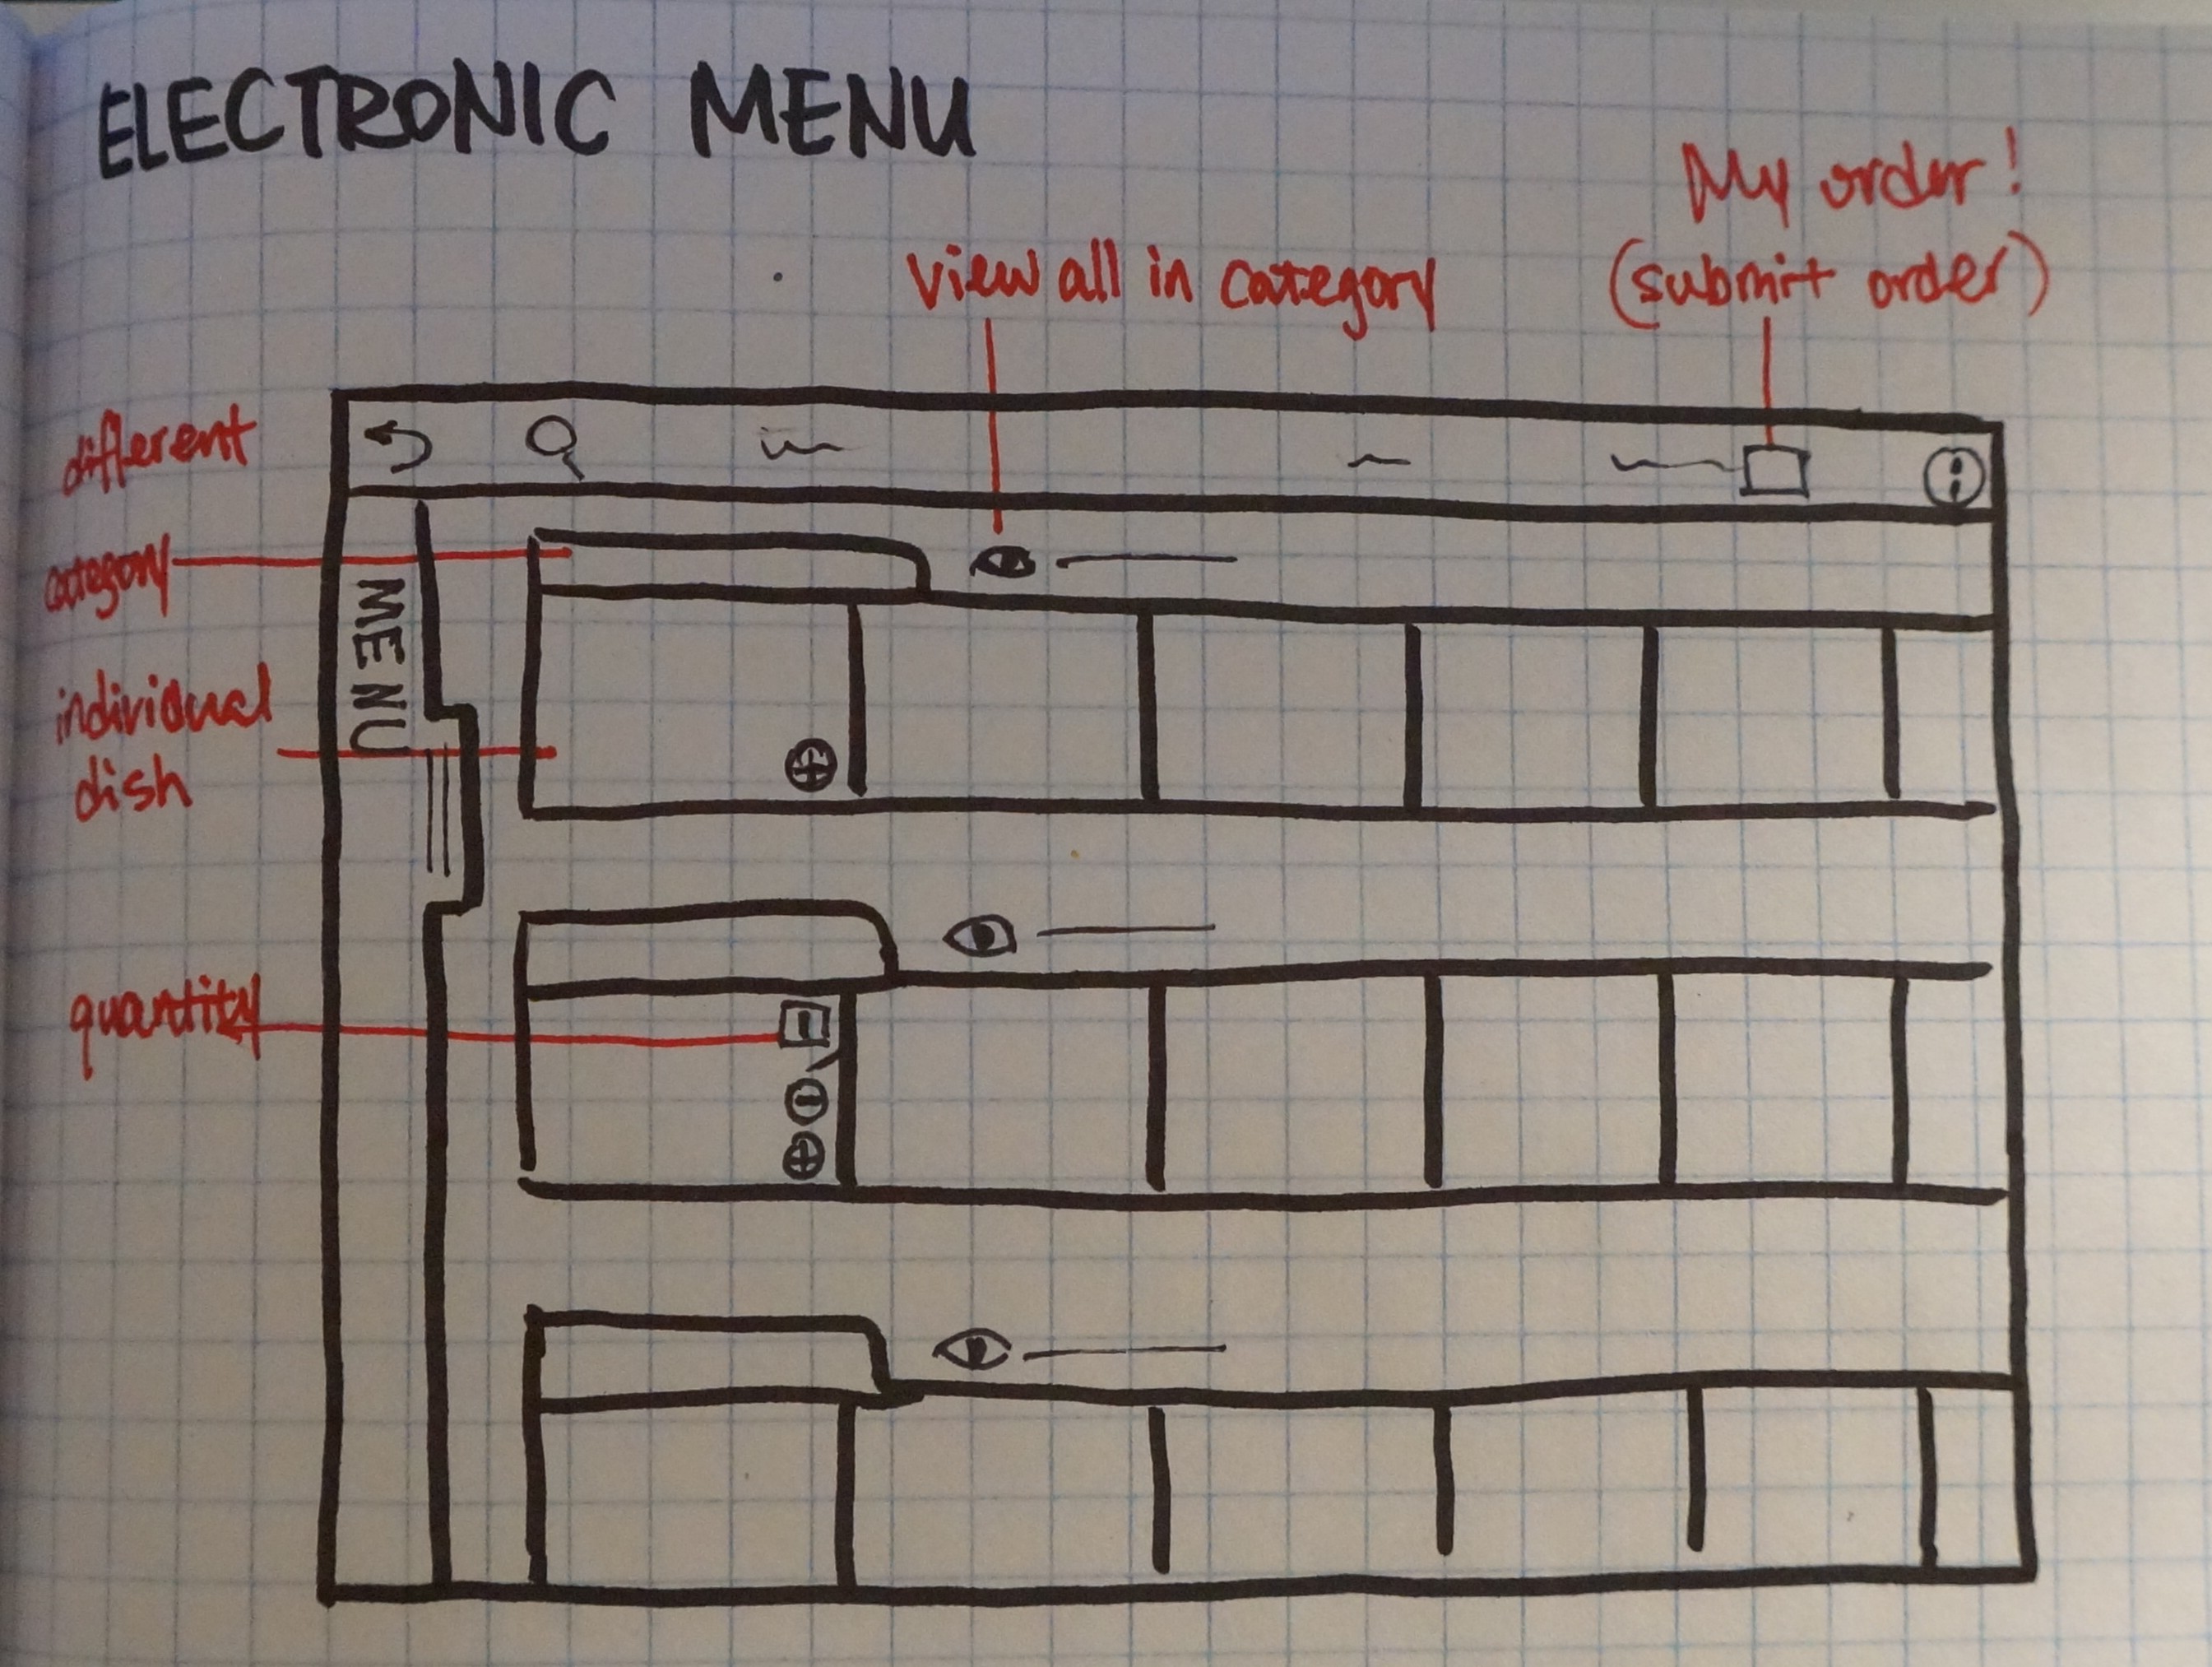 ELECTRONIC MENU
My order!
(submit order)
view all in category
different
category
individual
dish
MENU
quantity